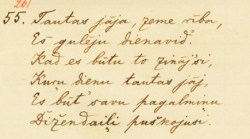 201
55. Tautas jāja, zeme rību,
Es gulēju dienavid.
Kad es būtu to zinājsi,
Kuru dienu tautas jāj,
Es but' savu pagalmiņu
Dižendaiļi puškojusi.